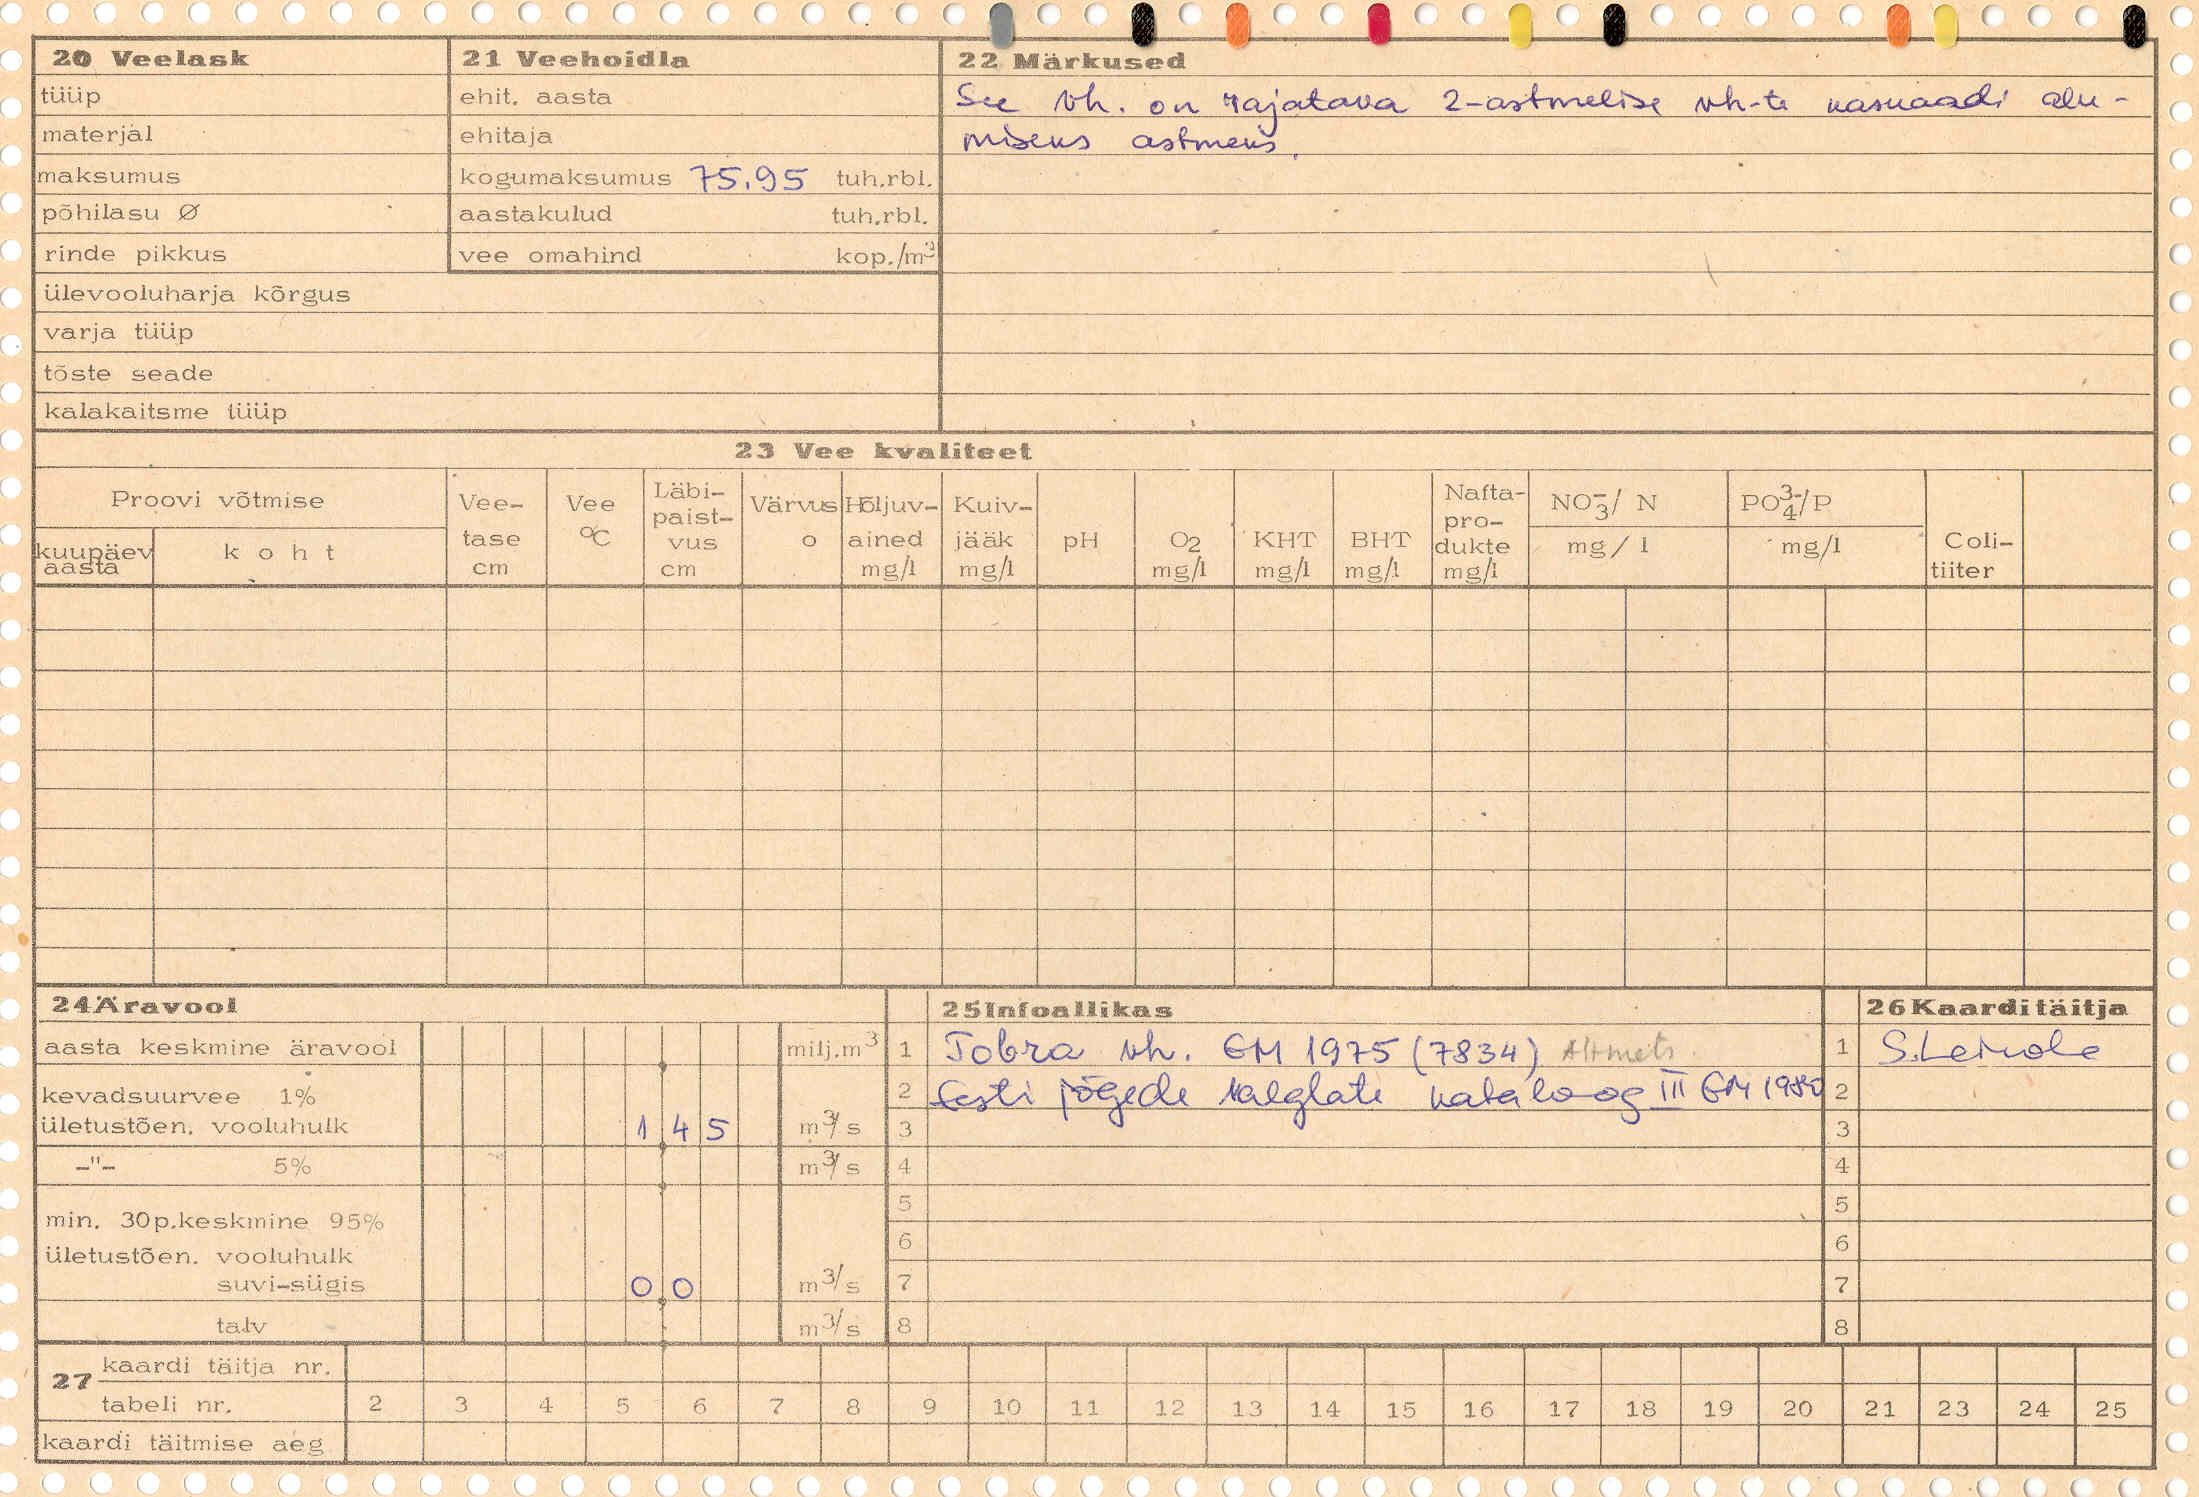 20 Veelask
tüüp
materjal
maksumus
põhilasu Ø
rinde pikkus
ülevooluharja kõrgus
varja tüüp
tõste seade
kalakaitsme tüüp
21 Veehoidla
ehit. aasta
ehitaja
kogumaksumus 75.95 tuh.rbl.
aastakulud tuh.rbl.
vee omahind kop./m³
22 Märkused
See vh. on rajatava 2-astmelise vh-te kaskaadi alu-
miseks astmeks.
23 Vee kvaliteet
Proovi võtmise
kuupäev aasta
koht
Vee-tase cm
Vee °C
Läbi-paist-vus cm
Värvus o
Hõljuv-ained mg/l
Kuiv-jääk mg/l
pH
O2 mg/l
KHT mg/l
BHT mg/l
Nafta-pro-dukte mg/l
NO3-/ N mg/l
PO4 3-/P mg/l
Coli-tiiter
24 Äravool
aasta keskmine äravool milj.m³
kevadsuurvee 1%
ületustõen. vooluhulk 1 4 5 m³/s
-"- 5% m³/s
min. 30p.keskmine 95%
ületustõen. vooluhulk
suvi-sügis 0 0 m³/s
talv m³/s
25 Infoallikas
1 Tobra vh. EM 1975 (7834) Altmets.
2 Eesti jõgede valglate kataloog III EM 1980
3
4
5
6
7
8
26 Kaarditäitja
1
2
3
4
5
6
7
8
27 kaardi täitja nr.
tabeli nr. 2 3 4 5 6 7 8 9 10 11 12 13 14 15 16 17 18 19 20 21 23 24 25
kaardi täitmise aeg